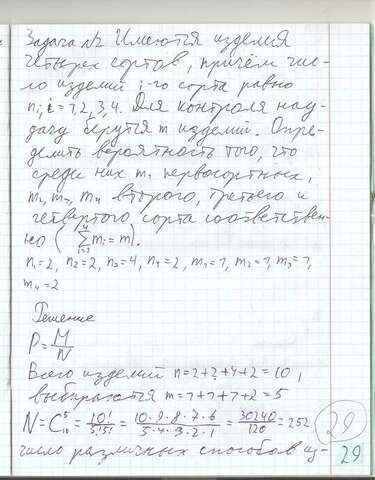 Задача №2 Имеются изделия
четырех сортов, причём чис-
ло изделий i-го сорта равно
nᵢ, i=1,2,3,4. Для контроля нау-
дачу берутся m изделий. Опре-
делить вероятность того, что
среди них m₁ первосортных,
m₂, m₃, m₄ второго, третьего и
четвертого сорта соответствен-
но (∑⁴ᵢ₌₁ mᵢ = m).
n₁=2, n₂=2, n₃=4, n₄=2, m₁=1, m₂=1, m₃=1,
m₄=2
Решение
P = M/N
Всего изделий n=2+2+4+2=10,
выбираются m=1+1+1+2=5
N = C⁵₁₀ = 10!/5!5! = 10·9·8·7·6/5·4·3·2·1 = 30240/120 = 252
число различных способов из-
29
29